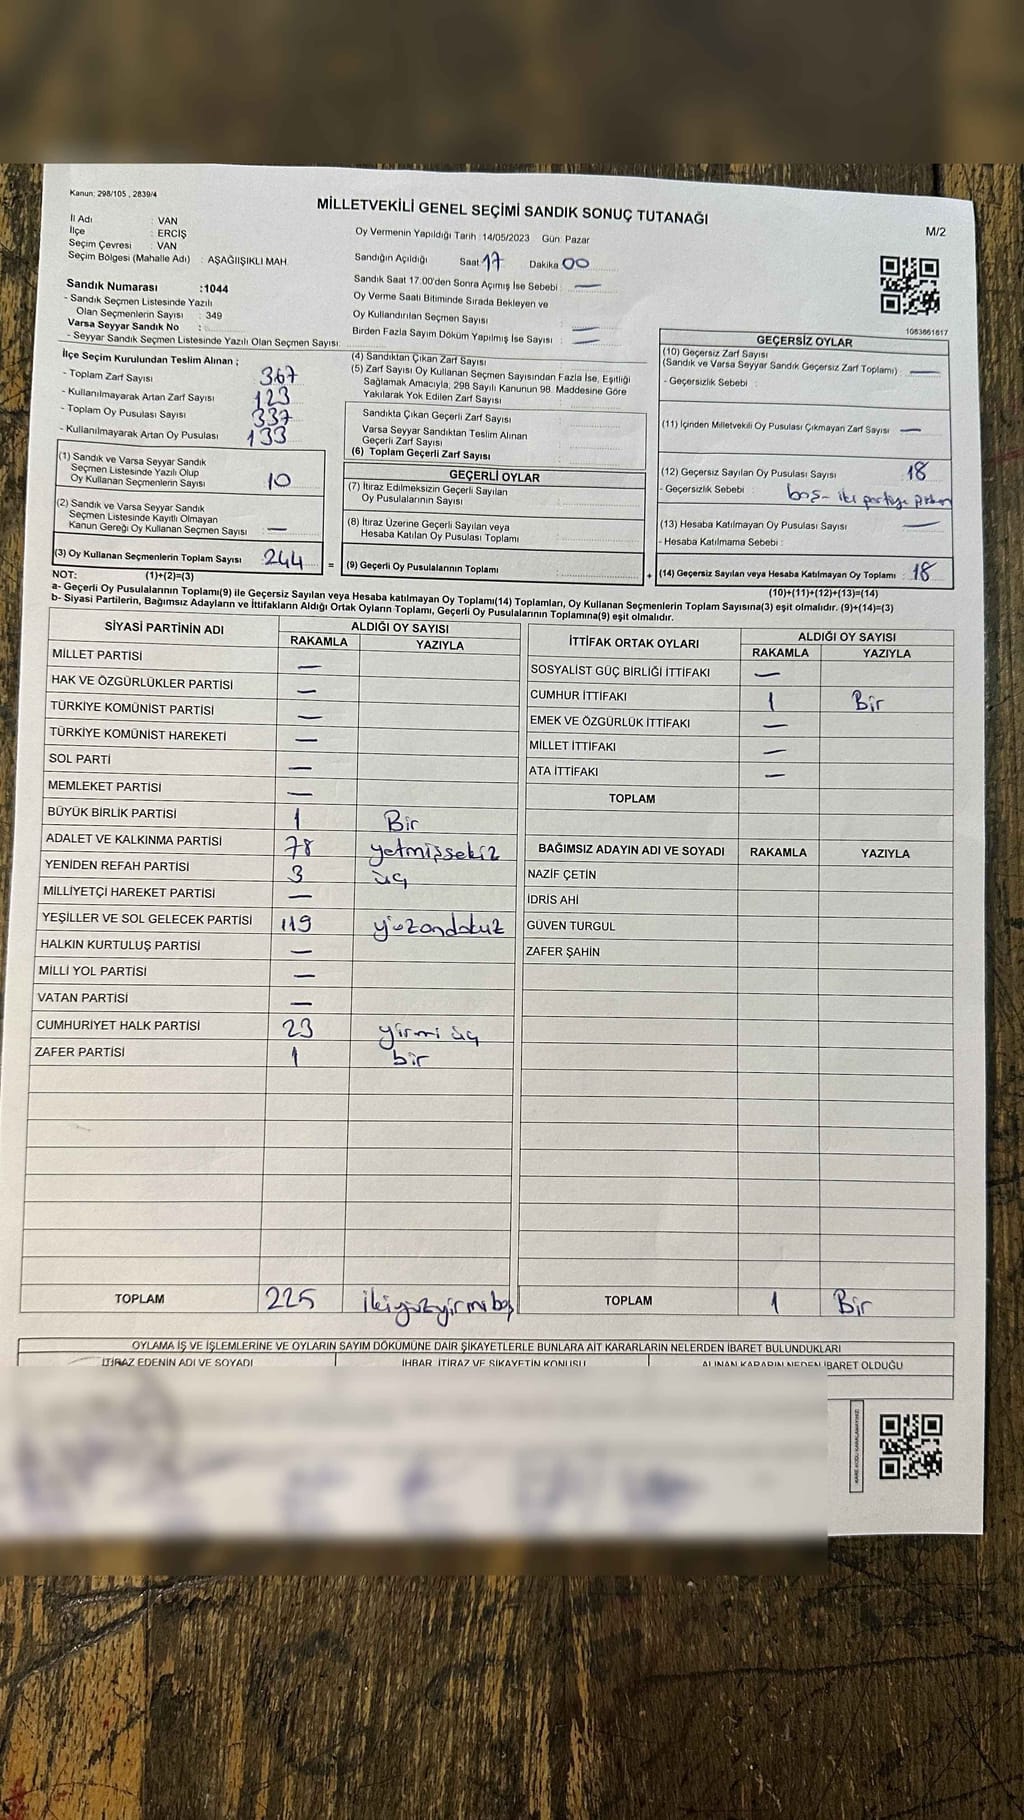 Kanun: 298/105 , 2839/4
MİLLETVEKİLİ GENEL SEÇİMİ SANDIK SONUÇ TUTANAĞI
M/2
İl Adı : VAN
İlçe : ERCİŞ
Seçim Çevresi : VAN
Seçim Bölgesi (Mahalle Adı) : AŞAĞIIŞIKLI MAH.
Oy Vermenin Yapıldığı Tarih :14/05/2023 Gün: Pazar
Sandığın Açıldığı Saat 17 Dakika 00
Sandık Saat 17:00'den Sonra Açımış İse Sebebi : —
Oy Verme Saati Bitiminde Sırada Bekleyen ve
Oy Kullandırılan Seçmen Sayısı : —
Birden Fazla Sayım Döküm Yapılmış İse Sayısı : —
Sandık Numarası :1044
- Sandık Seçmen Listesinde Yazılı
Olan Seçmenlerin Sayısı : 349
Varsa Seyyar Sandık No :
- Seyyar Sandık Seçmen Listesinde Yazılı Olan Seçmen Sayısı:
1083661617
İlçe Seçim Kurulundan Teslim Alınan ;
- Toplam Zarf Sayısı 367
- Kullanılmayarak Artan Zarf Sayısı 123
- Toplam Oy Pusulası Sayısı 337
- Kullanılmayarak Artan Oy Pusulası 133
(1) Sandık ve Varsa Seyyar Sandık
Seçmen Listesinde Yazılı Olup
Oy Kullanan Seçmenlerin Sayısı 10
(2) Sandık ve Varsa Seyyar Sandık
Seçmen Listesinde Kayıtlı Olmayan
Kanun Gereği Oy Kullanan Seçmen Sayısı : —
(3) Oy Kullanan Seçmenlerin Toplam Sayısı 244 =
(1)+(2)=(3)
(4) Sandıktan Çıkan Zarf Sayısı
(5) Zarf Sayısı Oy Kullanan Seçmen Sayısından Fazla İse, Eşitliği
Sağlamak Amacıyla, 298 Sayılı Kanunun 98. Maddesine Göre
Yakılarak Yok Edilen Zarf Sayısı :
Sandıkta Çıkan Geçerli Zarf Sayısı :
Varsa Seyyar Sandıktan Teslim Alınan
Geçerli Zarf Sayısı :
(6) Toplam Geçerli Zarf Sayısı :
GEÇERLİ OYLAR
(7) İtiraz Edilmeksizin Geçerli Sayılan
Oy Pusulalarının Sayısı :
(8) İtiraz Üzerine Geçerli Sayılan veya
Hesaba Katılan Oy Pusulası Toplamı :
(9) Geçerli Oy Pusulalarının Toplamı : +
GEÇERSİZ OYLAR
(10) Geçersiz Zarf Sayısı
(Sandık ve Varsa Seyyar Sandık Geçersiz Zarf Toplamı) : —
- Geçersizlik Sebebi :
(11) İçinden Milletvekili Oy Pusulası Çıkmayan Zarf Sayısı : —
(12) Geçersiz Sayılan Oy Pusulası Sayısı : 18
- Geçersizlik Sebebi : boş - iki partiye
(13) Hesaba Katılmayan Oy Pusulası Sayısı : —
- Hesaba Katılmama Sebebi :
(14) Geçersiz Sayılan veya Hesaba Katılmayan Oy Toplamı : 18
(10)+(11)+(12)+(13)=(14)
NOT:
a- Geçerli Oy Pusulalarının Toplamı(9) ile Geçersiz Sayılan veya Hesaba katılmayan Oy Toplamı(14) Toplamları, Oy Kullanan Seçmenlerin Toplam Sayısına(3) eşit olmalıdır. (9)+(14)=(3)
b- Siyasi Partilerin, Bağımsız Adayların ve İttifakların Aldığı Ortak Oyların Toplamı, Geçerli Oy Pusulalarının Toplamına(9) eşit olmalıdır.
SİYASİ PARTİNİN ADI ALDIĞI OY SAYISI
RAKAMLA YAZIYLA
MİLLET PARTİSİ —
HAK VE ÖZGÜRLÜKLER PARTİSİ —
TÜRKİYE KOMÜNİST PARTİSİ —
TÜRKİYE KOMÜNİST HAREKETİ —
SOL PARTİ —
MEMLEKET PARTİSİ —
BÜYÜK BİRLİK PARTİSİ 1 Bir
ADALET VE KALKINMA PARTİSİ 78 yetmişsekiz
YENİDEN REFAH PARTİSİ 3 üç
MİLLİYETÇİ HAREKET PARTİSİ —
YEŞİLLER VE SOL GELECEK PARTİSİ 119 yüzondokuz
HALKIN KURTULUŞ PARTİSİ —
MİLLİ YOL PARTİSİ —
VATAN PARTİSİ —
CUMHURİYET HALK PARTİSİ 23 yirmi üç
ZAFER PARTİSİ 1 bir
TOPLAM 225 ikiyüzyirmibeş
İTTİFAK ORTAK OYLARI ALDIĞI OY SAYISI
RAKAMLA YAZIYLA
SOSYALİST GÜÇ BİRLİĞİ İTTİFAKI —
CUMHUR İTTİFAKI 1 Bir
EMEK VE ÖZGÜRLÜK İTTİFAKI —
MİLLET İTTİFAKI —
ATA İTTİFAKI —
TOPLAM
BAĞIMSIZ ADAYIN ADI VE SOYADI RAKAMLA YAZIYLA
NAZİF ÇETİN
İDRİS AHİ
GÜVEN TURGUL
ZAFER ŞAHİN
TOPLAM 1 Bir
OYLAMA İŞ VE İŞLEMLERİNE VE OYLARIN SAYIM DÖKÜMÜNE DAİR ŞİKAYETLERLE BUNLARA AİT KARARLARIN NELERDEN İBARET BULUNDUKLARI
İTİRAZ EDENİN ADI VE SOYADI İHBAR, İTİRAZ VE ŞİKAYETİN KONUSU ALINAN KARARIN NEDEN İBARET OLDUĞU